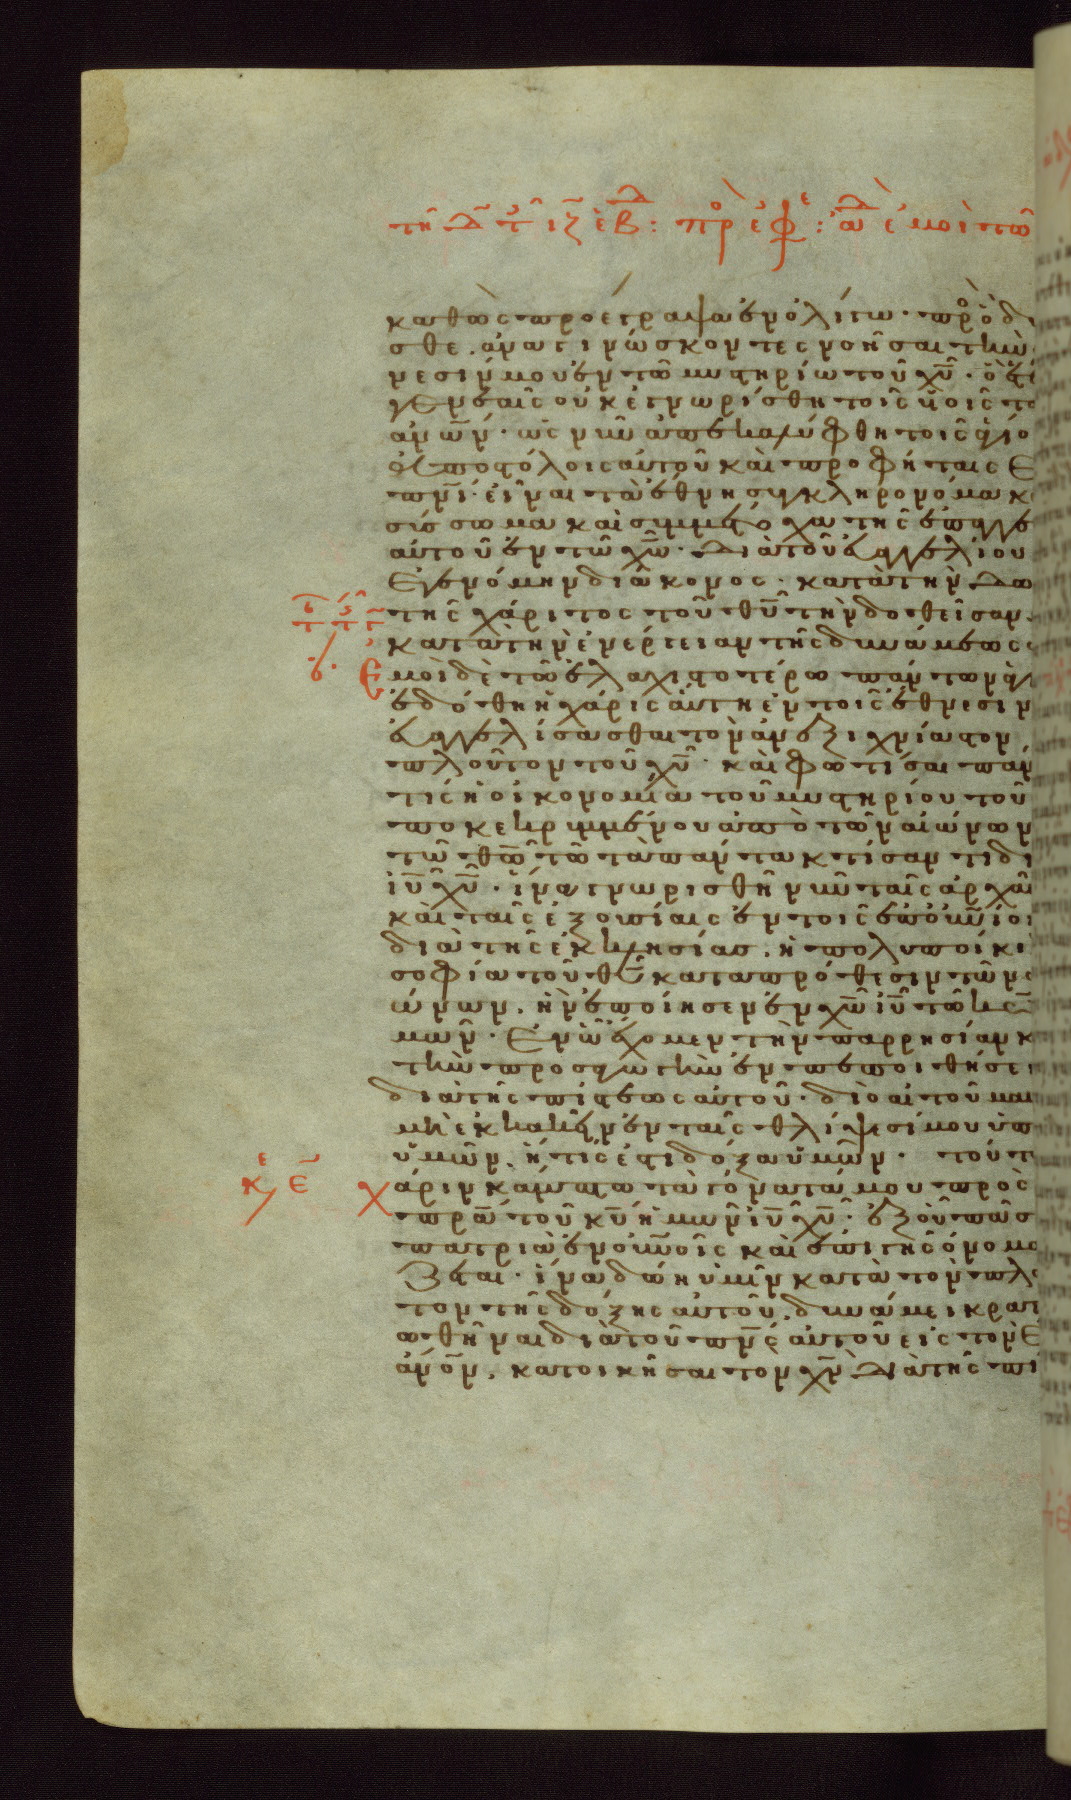 τῆ δ τ ιζ ἑβ: πρ ἐφε: ἀδ ἐμοὶ τῶ
καθὼς προέγραψα ἐν ὀλίγω· πρὸ ὃ δ
σθε. ἀναγινώσκοντες νοῆσαι τὴν
νεσίν μου ἐν τῶ μυστηρίω τοῦ χυ· ὃ ἑτέ
γενεαῖς οὐκ ἐγνωρίσθη τοῖς υἱοῖς τῶ
ανων· ὡς νῦν ἀπεκαλύφθη τοῖς ἁγίο
ἀποστόλοις αὐτοῦ καὶ προφήταις ἐ
πνι· εἶναι τὰ ἔθνη συγκληρονόμα κ
σύσσωμα καὶ συμμέτοχα τῆς ἐπαγγε
αὐτοῦ ἐν τῶ χω. διὰ τοῦ εὐαγγελίου
ἐγενόμην διάκονος· κατὰ τὴν δω
τῆς χάριτος τοῦ θυ τὴν δοθεῖσαν
κατὰ τὴν ἐνέργειαν τῆς δυνάμεως
β· Ἐμοὶ δὲ τῶ ἐλαχιστοτέρω πάντων ἁγ
ἐδόθη ἡ χάρις αὕτη ἐν τοῖς ἔθνεσιν
εὐαγγελίσασθαι τὸν ἀνεξιχνίαστον
πλοῦτον τοῦ χυ· καὶ φωτίσαι πάν
τίς ἡ οἰκονομία τοῦ μυστηρίου τοῦ
ποκεκρυμμένου ἀπὸ τῶν αἰώνων
τῶ θω τῶ τὰ πάντα κτίσαντι δι
ιυ χυ· ἵνα γνωρισθῆ νῦν ταῖς ἀρχαῖ
καὶ ταῖς ἐξουσίαις ἐν τοῖς ἐπουνίοι
διὰ τῆς ἐκκλησίασ. ἡ πολυποίκι
σοφία τοῦ θυ κατα πρόθεσιν τῶν
ώνων, ἣν ἐποίησεν ἐν χω ιυ τῶ κω
μων· Ἐν ὧ ἔχομεν τὴν παρρησίαν κ
τὴν προσαγωγὴν ἐν πεποιθήσει
διὰ τῆς πίστεως αὐτοῦ· διὸ αἰτοῦμαι
μὴ ἐκκακεῖν ἐν ταῖς θλίψεσί μου ὑπ
ὑμῶν, ἥτις ἐστὶ δόξα ὑμῶν· τούτ
κε ε χάριν κάμπτω τὰ γόνατά μου πρὸς
πρα τοῦ κυ ἡμῶν ιυ χυ· ἐξ οὗ πᾶσ
πατριὰ ἐν ουνοῖς καὶ ἐπὶ γῆς ὀνομά
ζεται· ἵνα δώη ὑμῖν κατὰ τὸν πλ
τον τῆς δόξης αὐτοῦ, δυνάμει κρατ
ωθῆναι διὰ τοῦ πνς αὐτοῦ εἰς τὸν ἔ
ανον, κατοικῆσαι τον χν διὰ τῆς πί